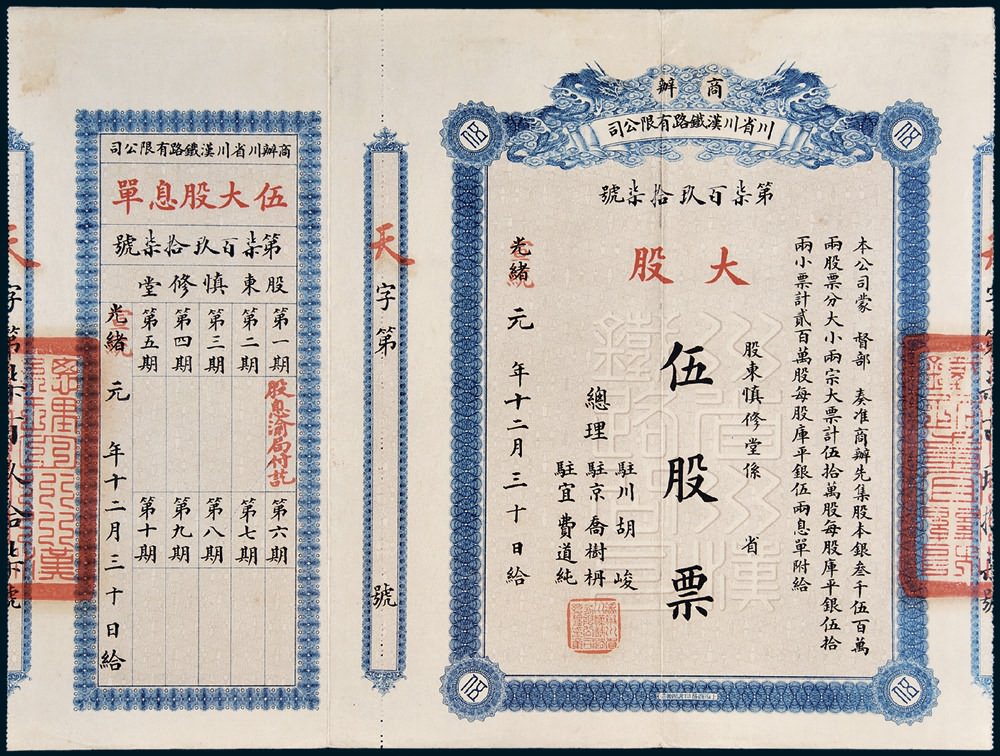 商辦
川省川漢鐵路有限公司
第柒百玖拾柒號
大股
本公司蒙 督部 奏准商辦先集股本銀叁千伍百萬
兩股票分大小兩宗大票計伍拾萬股每股庫平銀伍拾
兩小票計貳百萬股每股庫平銀伍兩息單附給
股東慎修堂係 省
伍股票
總理
駐川胡峻
駐京喬樹枬
駐宜費道純
光緒
宣統
元年十二月三十日給
川省川漢
鐵路公司
天字第 號
商辦川省川漢鐵路有限公司
伍大股息單
第柒百玖拾柒號
股東慎修堂
第一期
股息渝局付訖
第二期
第三期
第四期
第五期
第六期
第七期
第八期
第九期
第十期
光緒
宣統
元年十二月三十日給